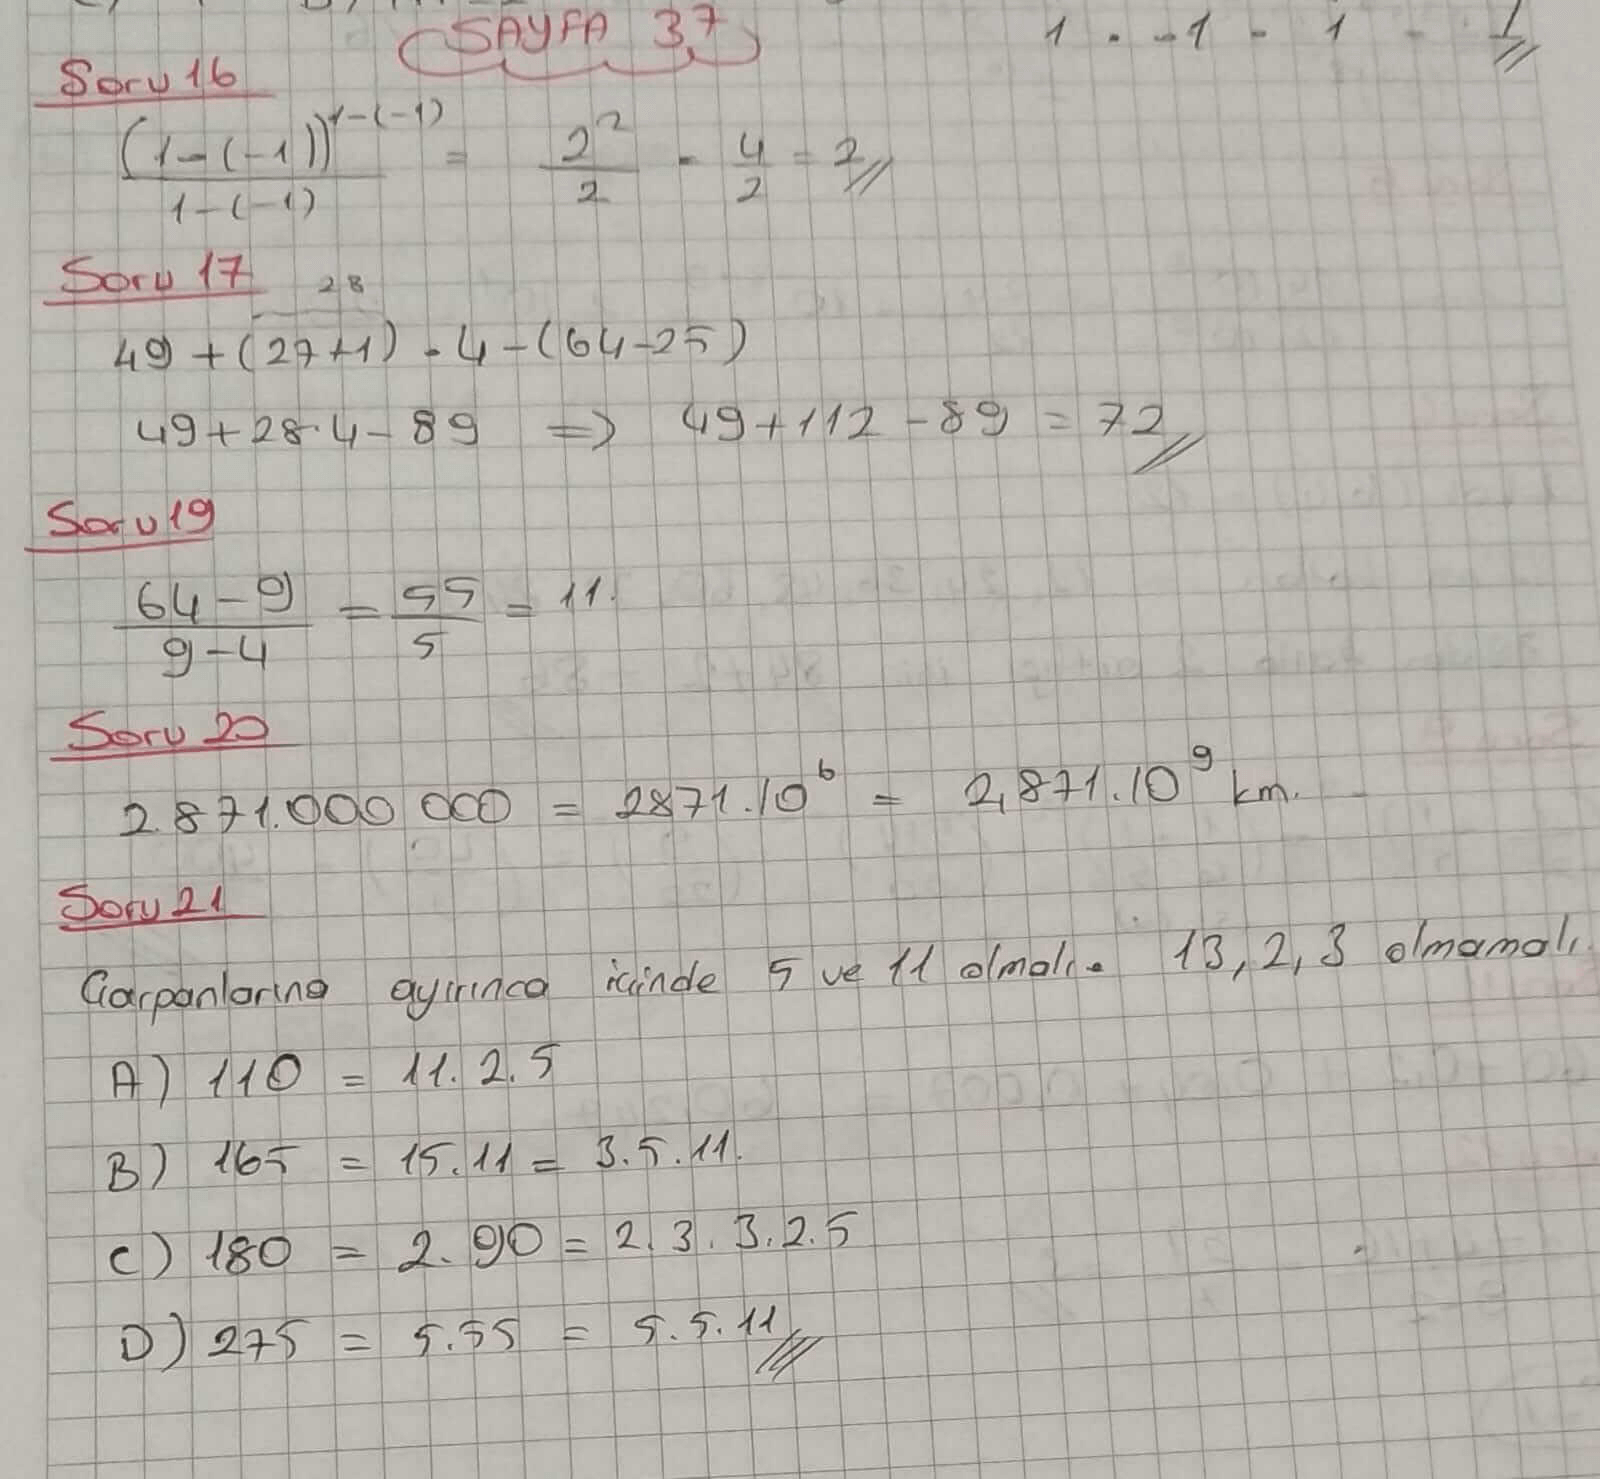 SAYFA 37
1 . -1 - 1 - 1
Soru 16
(1-(-1))^1-(-1) / 1-(-1) = 2² / 2 - 4/2 = 2
Soru 17
28
49 + (27+1) . 4 - (64-25)
49+28.4-89 => 49+112-89 = 72
Soru 19
64-9 / 9-4 = 55/5 = 11.
Soru 20
2.871.000 000 = 2871.10⁶ = 2,871.10⁹ km.
Soru 21
Çarpanlarına ayırınca içinde 5 ve 11 olmalı. 13, 2, 3 olmamalı.
A) 110 = 11.2.5
B) 165 = 15.11 = 3.5.11.
C) 180 = 2.90 = 2.3.3.2.5
D) 275 = 5.55 = 5.5.11